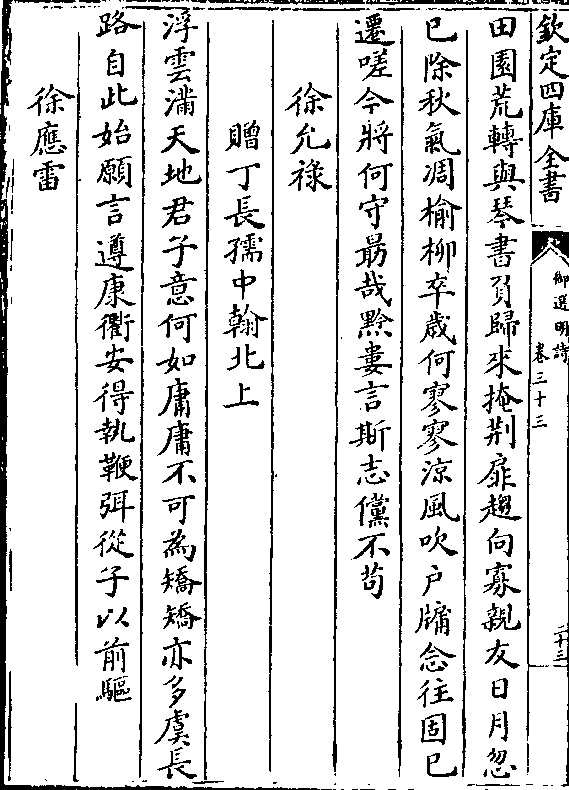 欽定四庫全書
御選明詩
卷三十三
二十三
田園荒轉與琴書負歸來掩荆扉趨向寡親友日月忽
已除秋氣凋榆柳卒歲何寥寥涼風吹户牖念往固已
遷嗟今將何守勗哉黔婁言斯志儻不茍
徐允禄
贈丁長孺中翰北上
浮雲滿天地君子意何如庸庸不可為矯矯亦多虞長
路自此始願言遵康衢安得執鞭弭從子以前驅
徐應雷